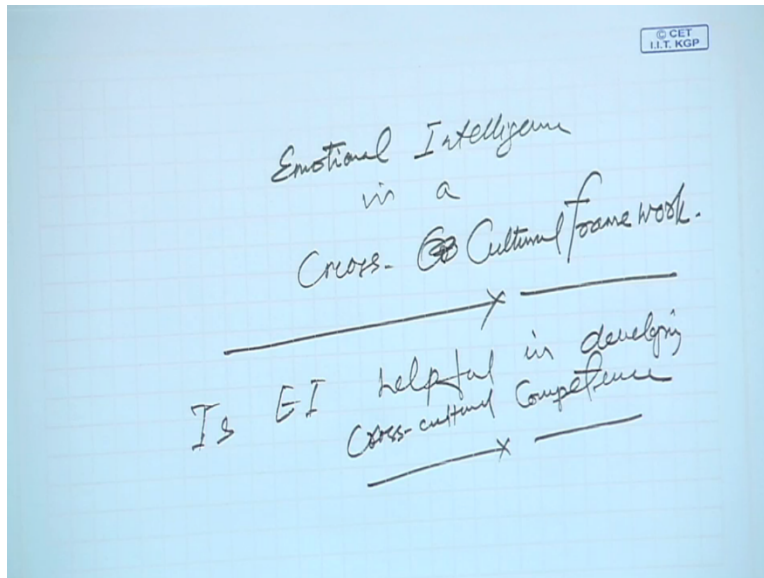 © CET
I.I.T. KGP
Emotional Intelligence
in a
Cross- Cultural framework.
Is EI helpful in developing
Cross-cultural Competence